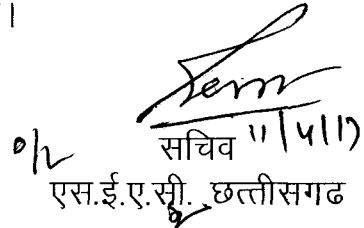 ।
सचिव 11/4/17
एस.ई.ए.सी. छत्तीसगढ